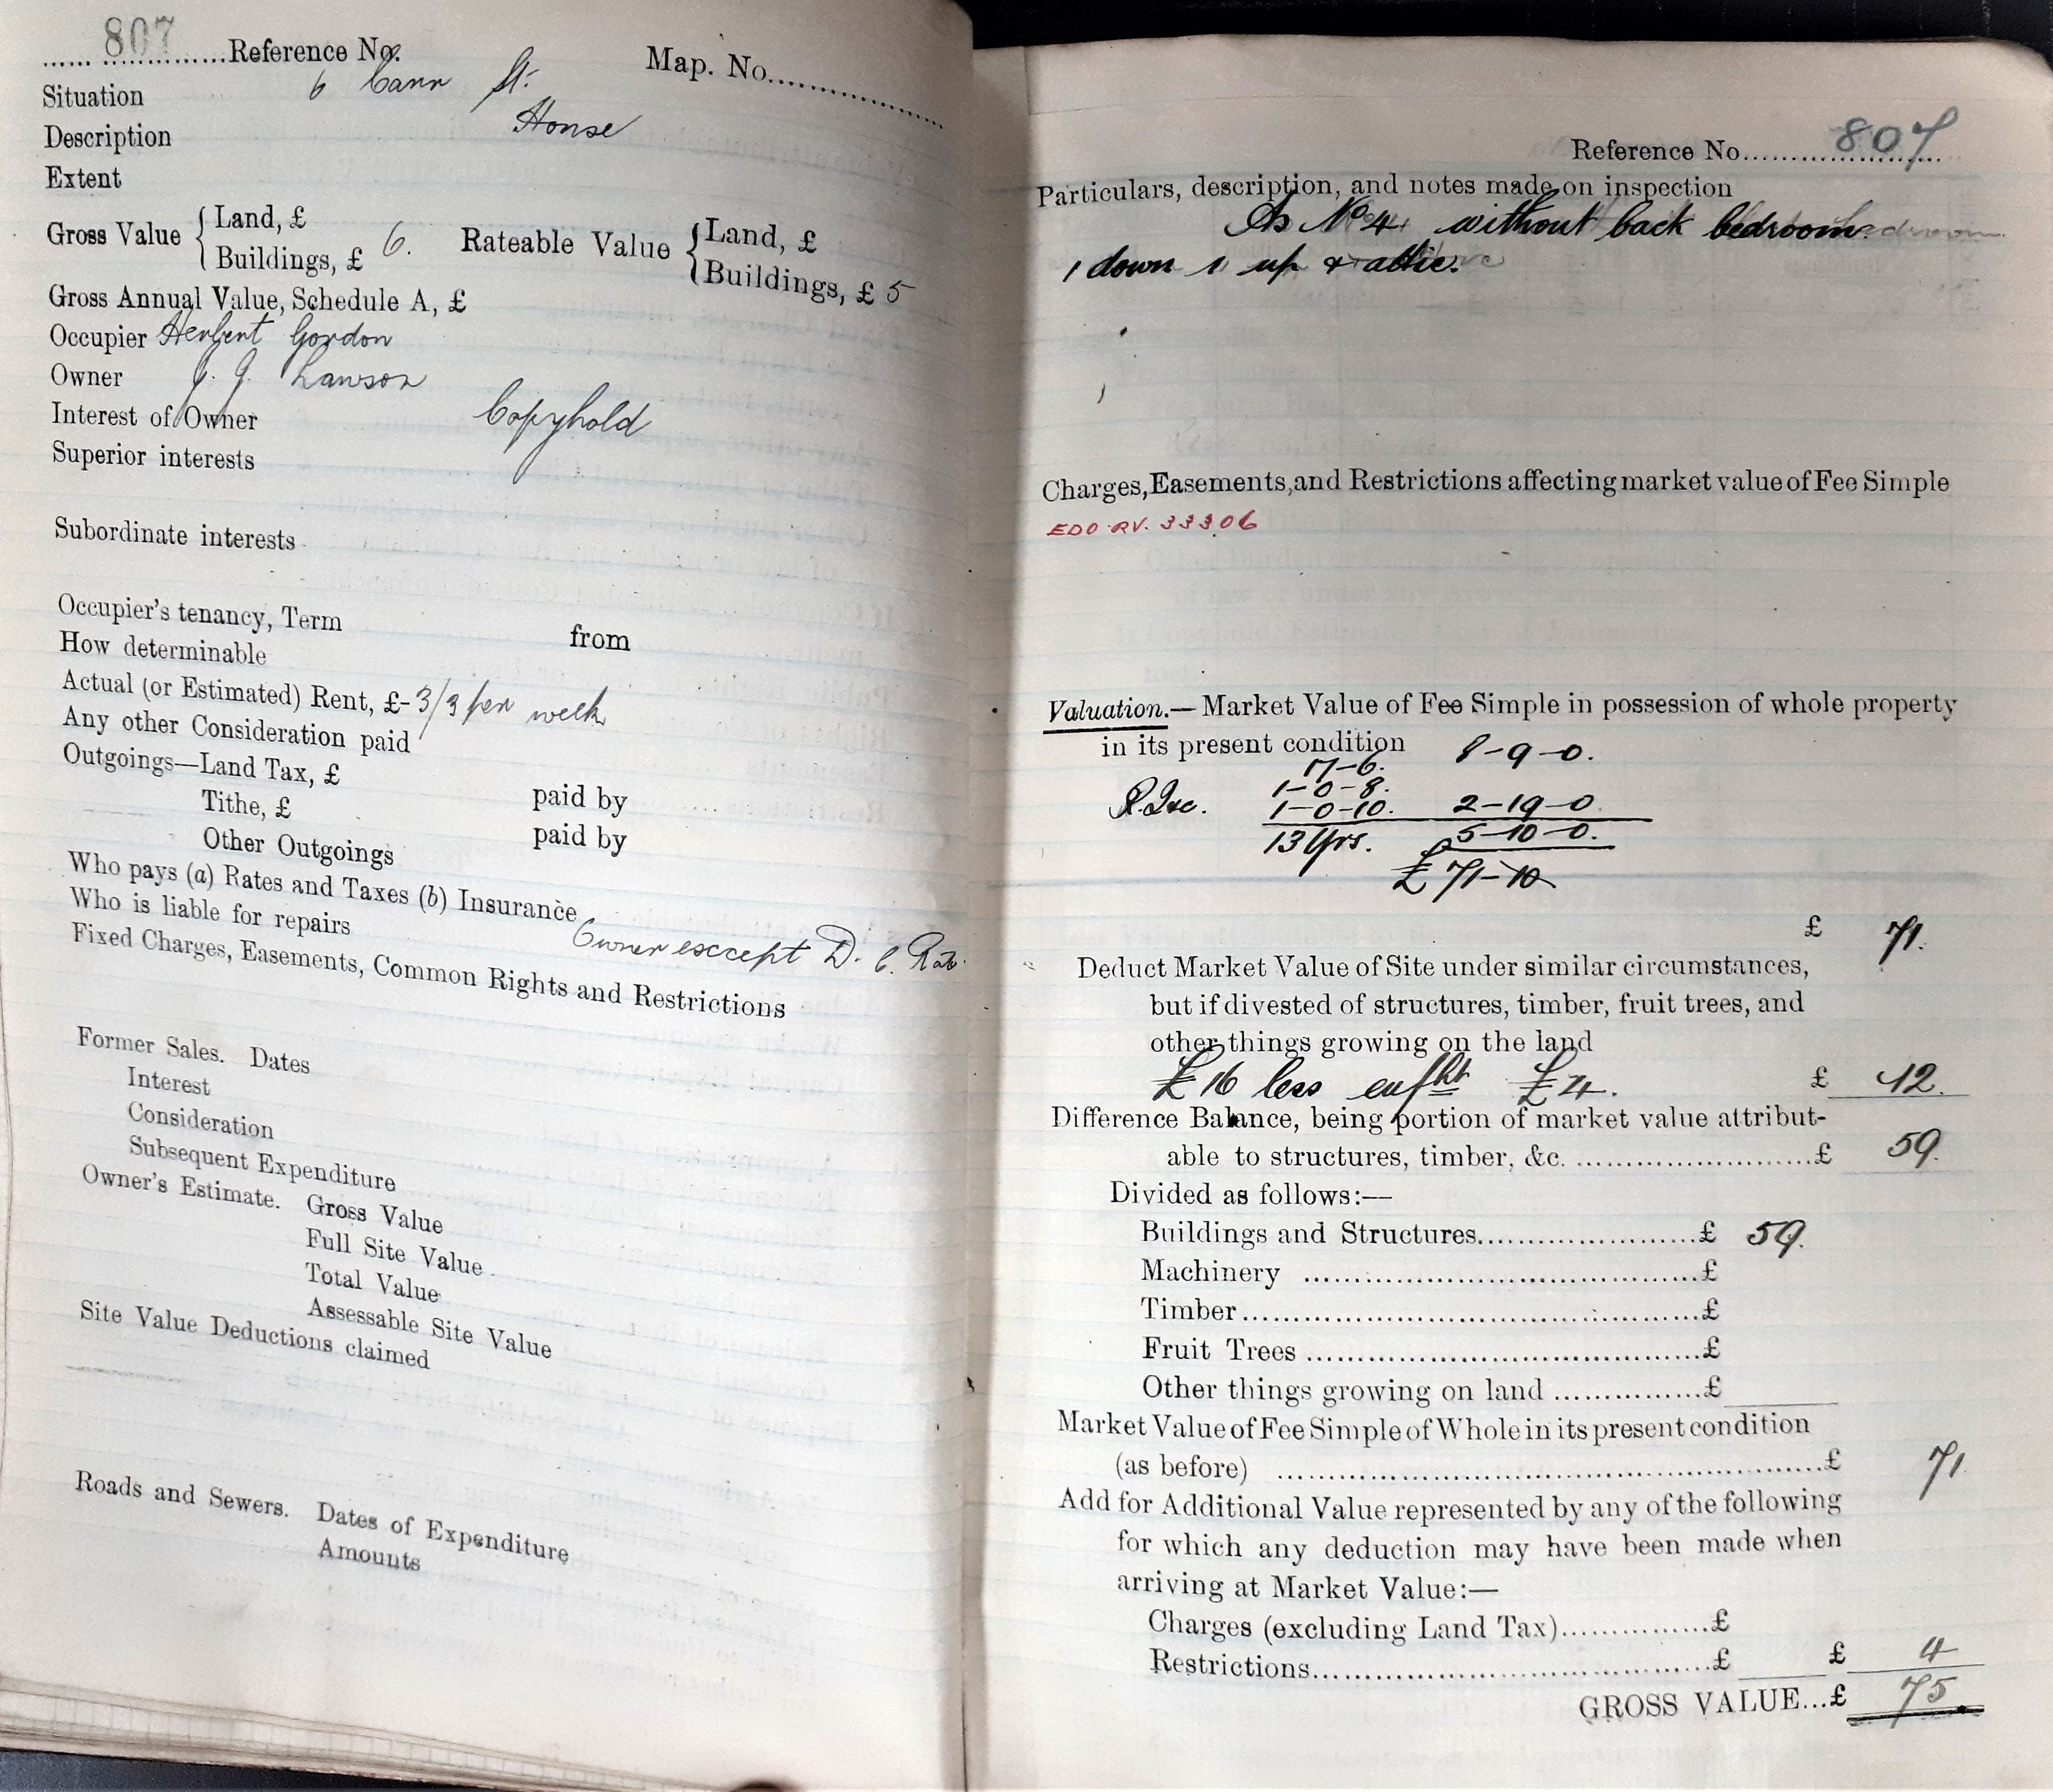 807 Reference No. Map. No.
Situation 6 Cann St.
Description House
Extent
Gross Value { Land, £ Rateable Value { Land, £
Buildings, £ 6. Buildings, £ 5
Gross Annual Value, Schedule A, £
Occupier Herbert Gordon
Owner J. J. Lawson
Interest of Owner Copyhold
Superior interests
Subordinate interests
Occupier's tenancy, Term from
How determinable
Actual (or Estimated) Rent, £- 3/3 per week
Any other Consideration paid
Outgoings—Land Tax, £ paid by
Tithe, £ paid by
Other Outgoings
Who pays (a) Rates and Taxes (b) Insurance
Who is liable for repairs Owner except D. C. Rate
Fixed Charges, Easements, Common Rights and Restrictions
Former Sales. Dates
Interest
Consideration
Subsequent Expenditure
Owner's Estimate. Gross Value
Full Site Value
Total Value
Assessable Site Value
Site Value Deductions claimed
Roads and Sewers. Dates of Expenditure
Amounts
Reference No. 807
Particulars, description, and notes made on inspection
As No 4 without back bedroom.
1 down 1 up & attic.
Charges, Easements, and Restrictions affecting market value of Fee Simple
EDO RV. 33306
Valuation.—Market Value of Fee Simple in possession of whole property
in its present condition 8-9-0.
17-6.
1-0-8.
1-0-10. 2-19-0
13 Yrs. 5-10-0.
£71-10
£ 71.
Deduct Market Value of Site under similar circumstances,
but if divested of structures, timber, fruit trees, and
other things growing on the land
£16 less enfht £4. £ 12.
Difference Balance, being portion of market value attribut-
able to structures, timber, &c. £ 59.
Divided as follows:—
Buildings and Structures £ 59.
Machinery £
Timber £
Fruit Trees £
Other things growing on land £
Market Value of Fee Simple of Whole in its present condition
(as before) £ 71
Add for Additional Value represented by any of the following
for which any deduction may have been made when
arriving at Market Value:—
Charges (excluding Land Tax) £
Restrictions £ £ 4
GROSS VALUE... £ 75.